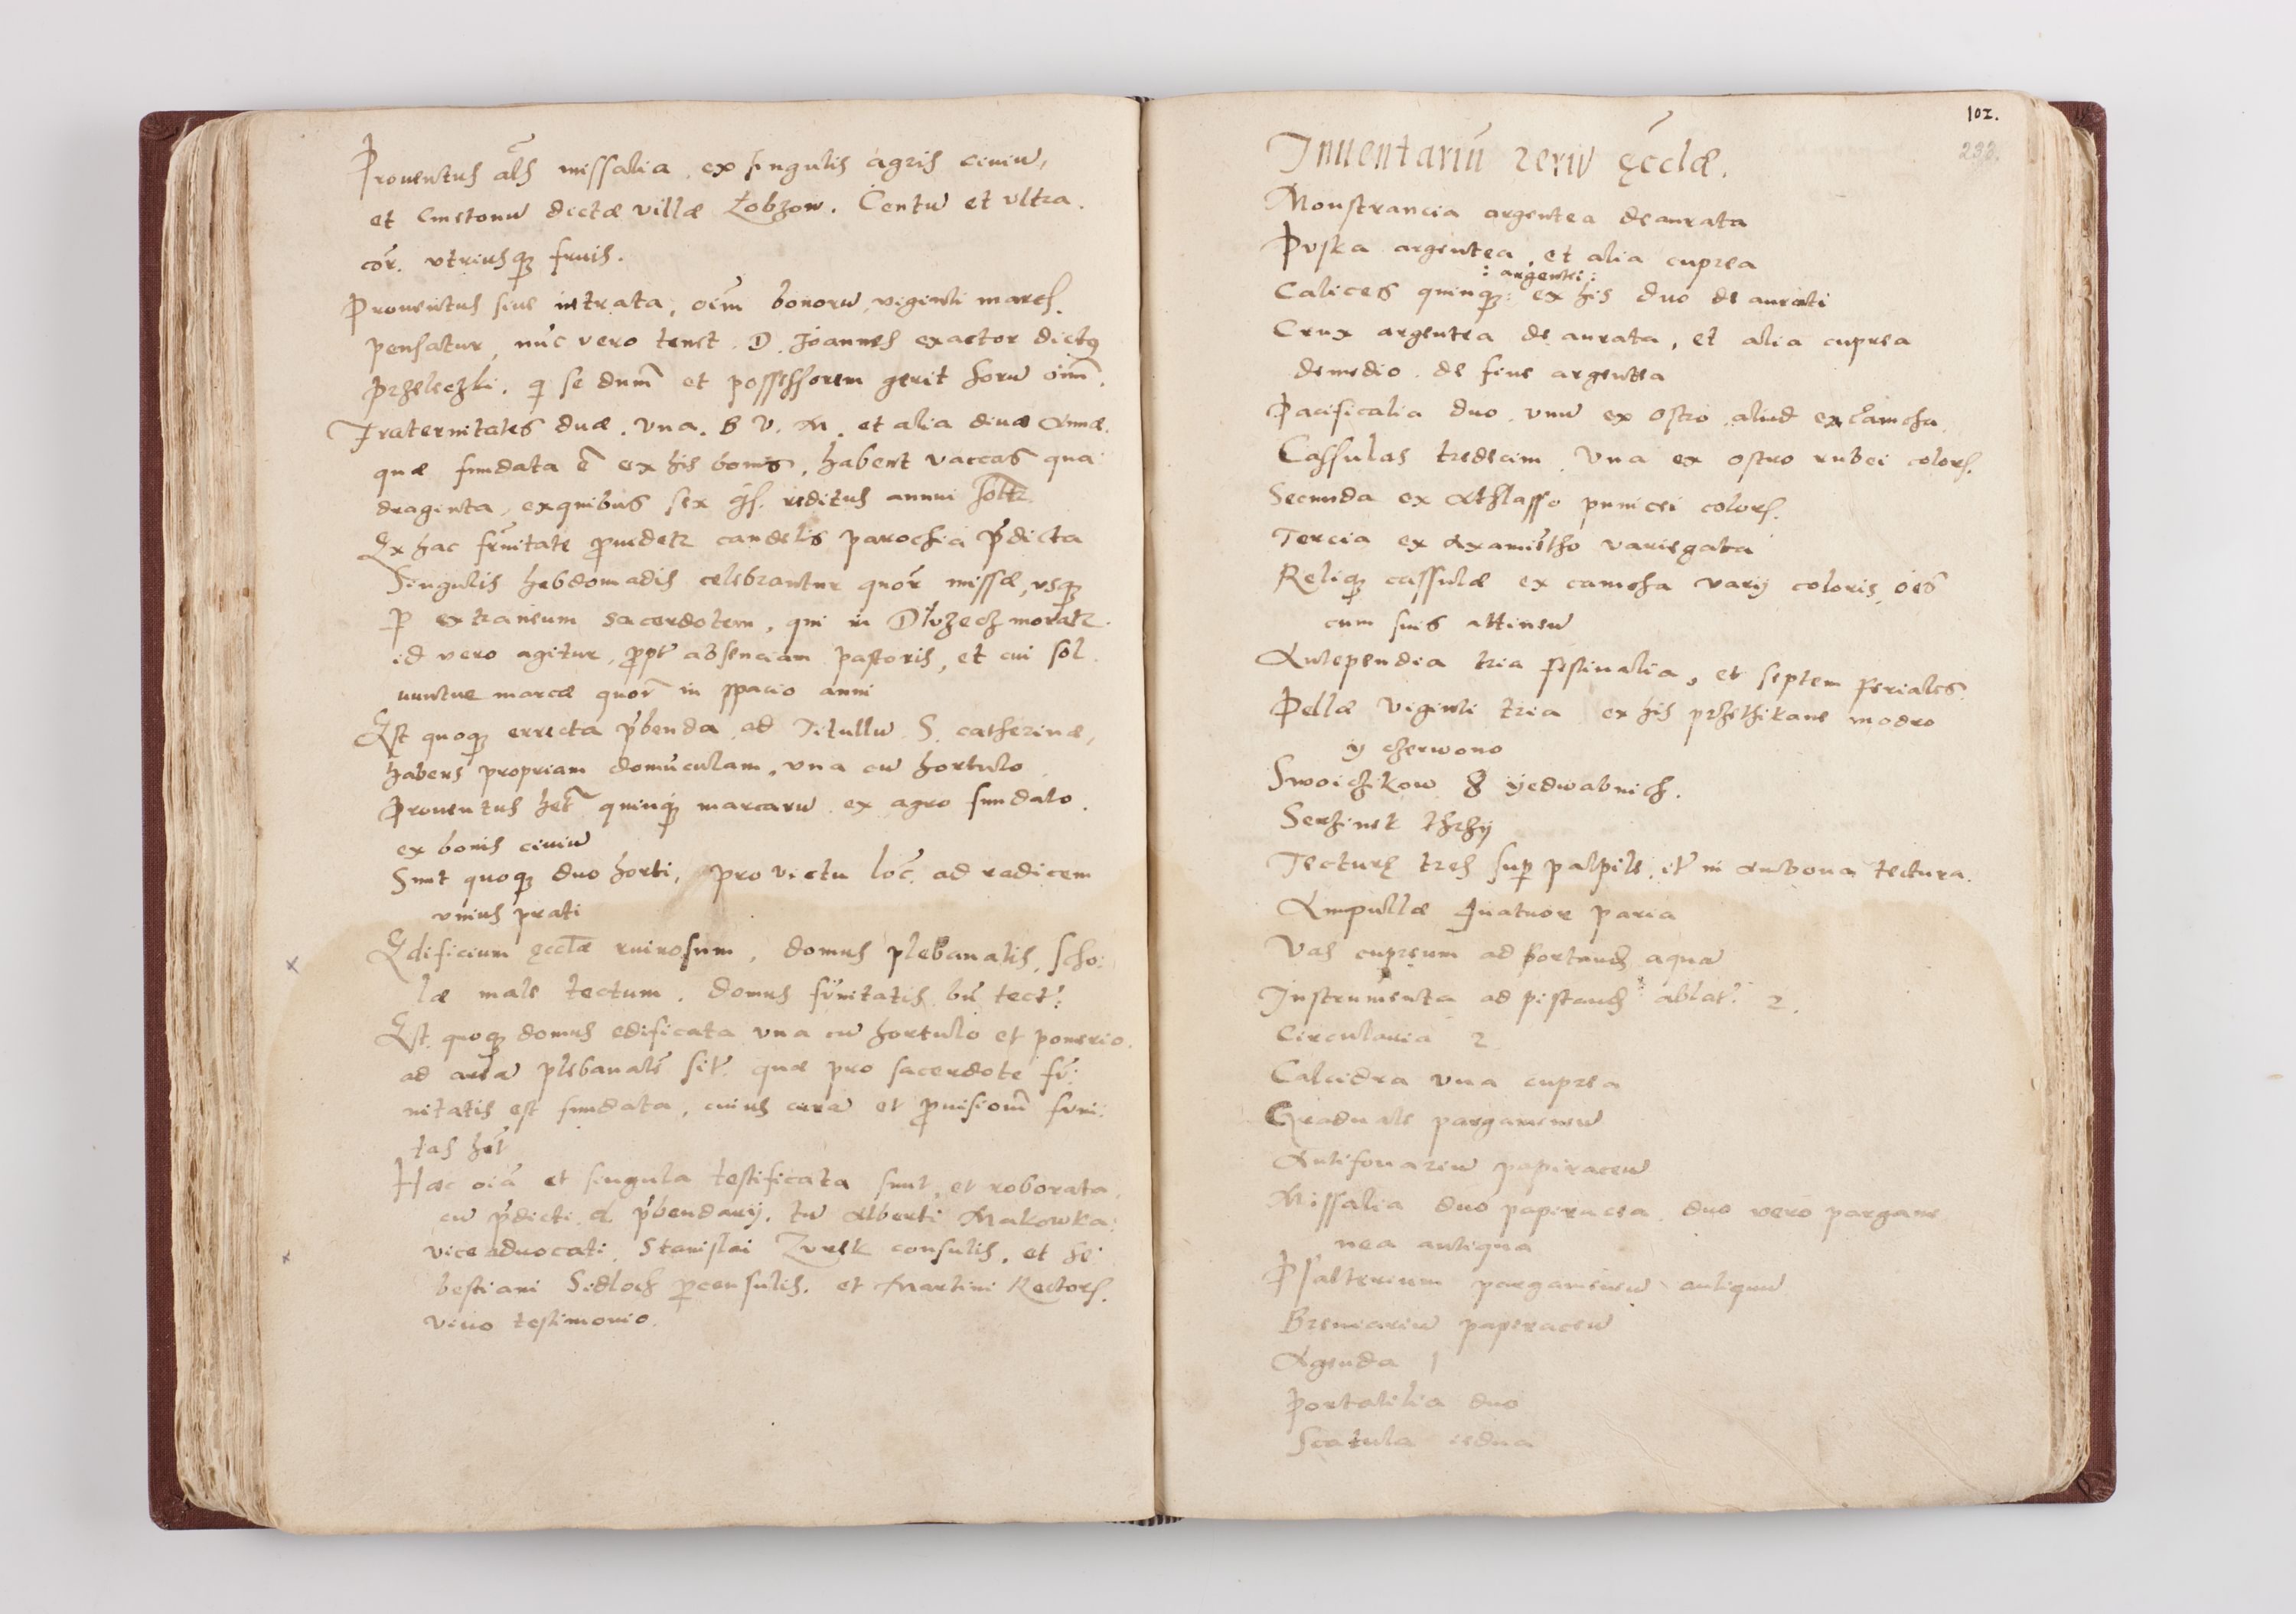 Prouentus als missalia, ex singulis agris ciuiu,
et Cmetonu dictæ villæ Łobzow. Centu et vltra.
cor. vtriusq frusis.
Prouentus siue intrata, oim bonoru, viginti marcs.
pensatur, nuc vero tenet. D. Joannes exactor dictq
Przeleczki. q se dnum et possessorem gerit horu oim.
Fraternitates duæ. Vna. B V. M. et alia diuæ Annæ.
quæ fundata e ex his bonis, habent vaccas qua
draginta, ex quibus sex gs. reditus annui soltr.
Ex hac frnitate puidetr candelis parochia pdicta
Singulis hebdomadis celebrantur quor missæ, vsq
p extraneum sacerdotem, qui in Dlvzech moratr.
id vero agitur, ppt absenciam pastoris, et cui sol
uuntur marcæ quor in spacio anni
Est quoq errecta pbenda, ad Titullu S. catherinæ,
habens propriam domunculam, vna cu hortulo
Prouentus het quinq marcaru ex agro fundato.
ex bonis ciuiu
Sunt quoq duo horti, pro victu loc. ad radicem
vnius prati
Edificium ęcclæ ruinosum, domus plebanalis, scho:
læ male tectum. Domus frnitatis bn tect:
Est quoq domus edificata vna cu hortulo et pomerio.
ad area plebanale sit. quæ pro sacerdote fr:
nitatis est fundata, cuius cura et puisionem frni:
tas het
Hæc oia et singula testificata sunt, et roborata,
cu pdicti d pbendarij, tu Alberti Makowka:
vice aduocati, Stanislai Zvrek consulis, et Se:
bestiani Sidloch pconsulis. et Martini Rectors.
viuo testimonio.
102.
233.
Inuentariu reru ęcclæ.
Monstrancia argentea deaurata
Puska argentea, et alia cuprea
: argentei :
Calices quinq: ex his duo de aurati
Crux argentea de aurata, et alia cuprea
demedio de fine argentea
Pacificalia duo, vnu ex ostro aliud ex camcha
Cassulas tredecim. Vna ex ostro rubei colors.
Secunda ex Athlasso punicei colors.
Tercia ex Axamitho variegata
Reliq cassulæ ex camcha varij coloris, oes
cum suis attinen
Antependia tria festiualia, et septem feriales
Pellæ viginti tria ex his przethikane modro
y czerwono
Swoiczikow 8 yedwabnich.
Serzinek thrzy
Tecturę tres sup palpite, it in Anbona tectura.
Ampullæ quatuor paria
Vas cupreum ad portand aqua
Instrumenta ad pistand oblat: 2.
Circularia 2
Calcidra vna cuprea
Graduale pargameneu
Antifonariu papiraceu
Missalia duo papiracea. duo vero pargame
nea antiqua
Psalterium pargameneu antiquu
Breuiariu papiraceu
Agenda 1
Portatilia duo
Scatula